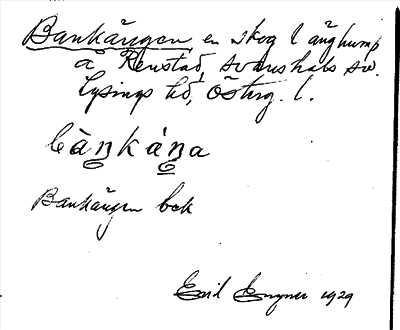 Bankängen en skog l änghump
å Renstad, Svanshals sn.
Lysings hd, Österg. l.
bàṉkáṉa
Bankängen bok
Emil 1929